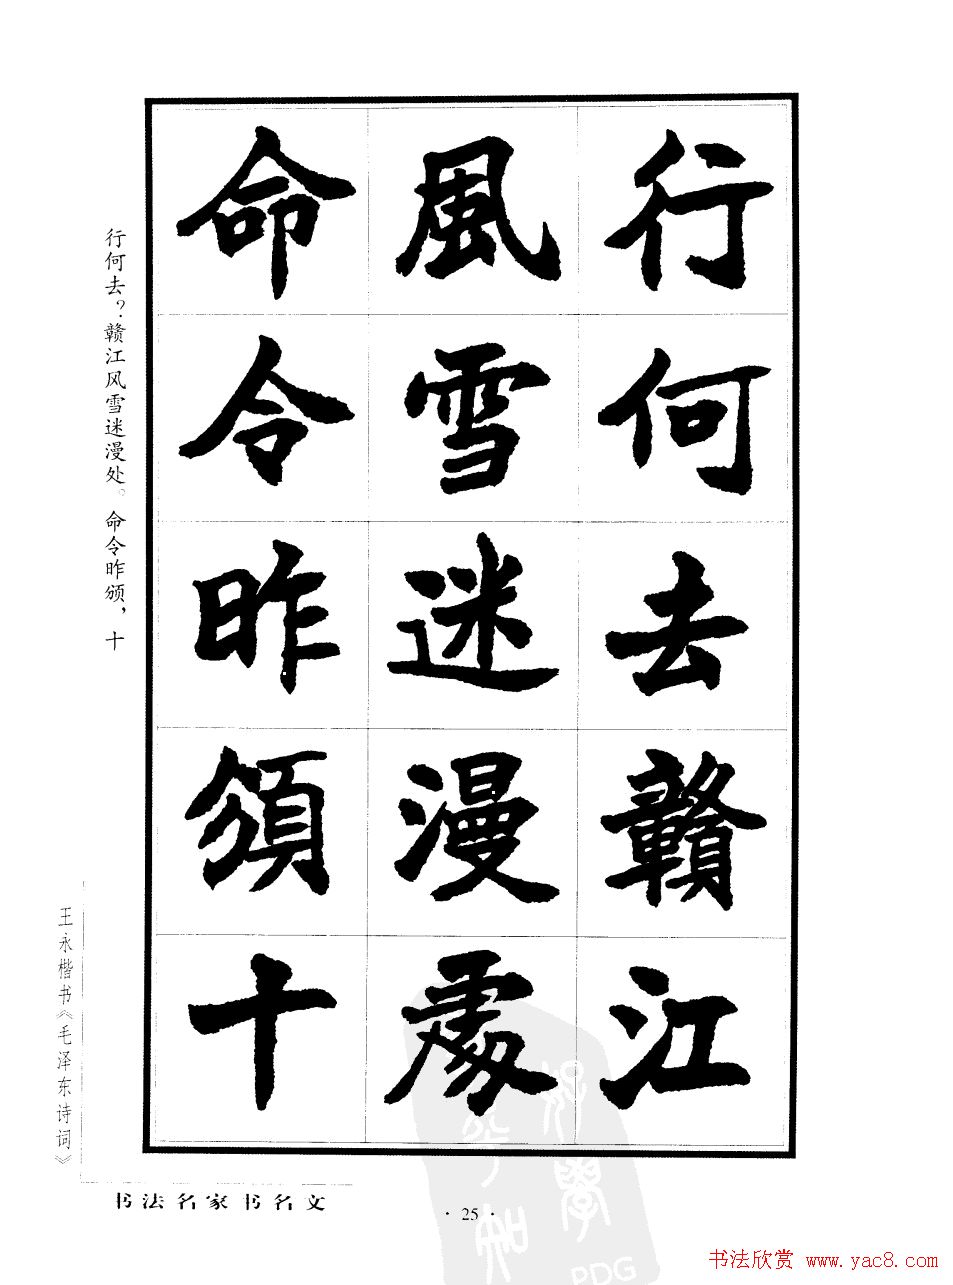 行何去贛江
風雪迷漫處
命令昨頒十
行何去？赣江风雪迷漫处。命令昨颁，十
王永楷书《毛泽东诗词》
书法名家书名文
·25·
PDG
书法欣赏 www.yac8.com